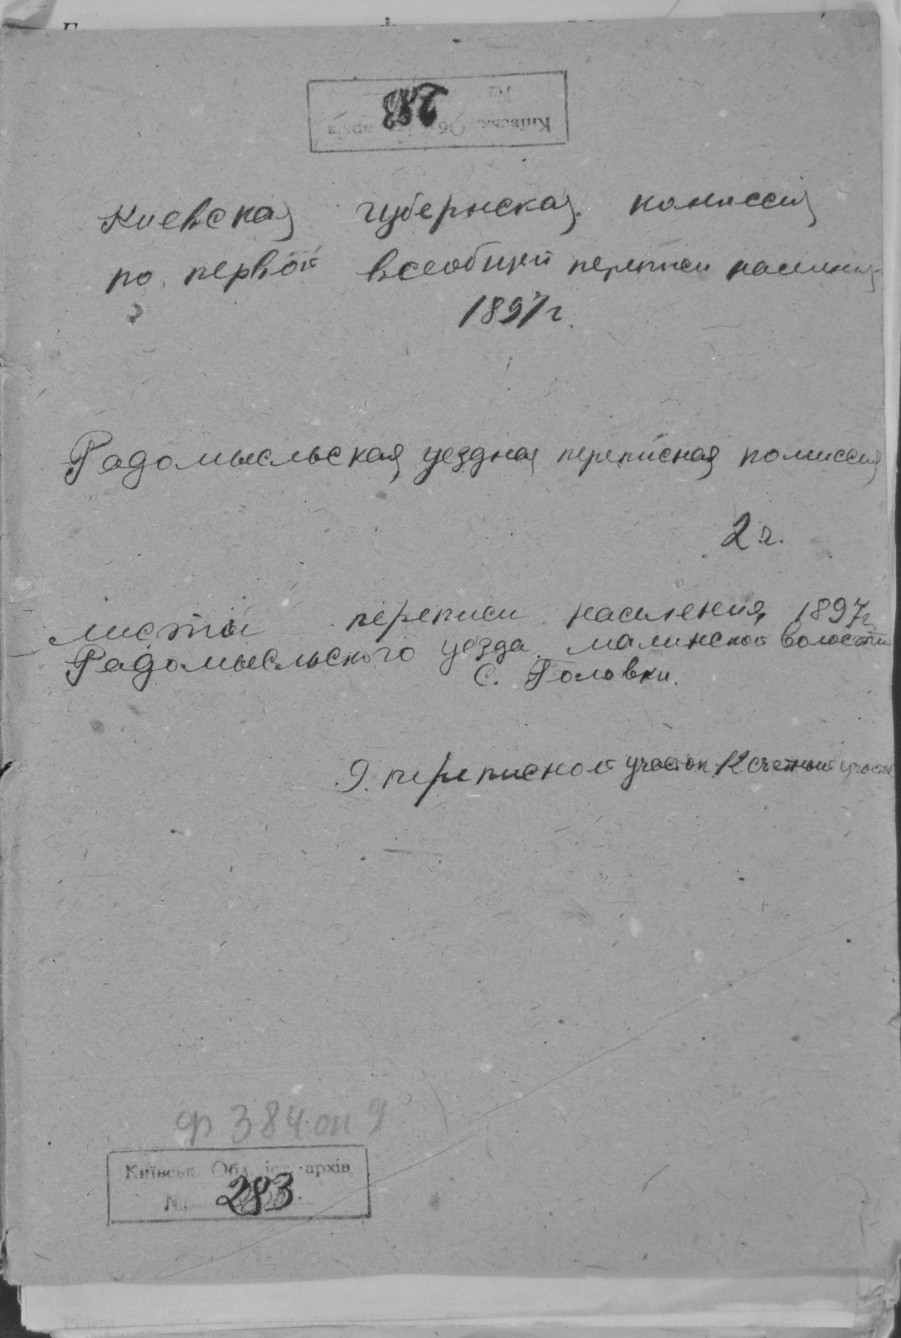 283
Київськ. Об архів
№
Киевская губернская комиссия
по первой всеобщей переписи населения
1897 г.
Радомысльская уездная переписная комиссия
2 г.
листы переписи населения 1897 г
Радомысльского уезда малинской волости
С. Головки.
9. переписной участок 12 счетный участок
Ф 384 оп 9
Київськ. Обл. іст. архів
№ 283